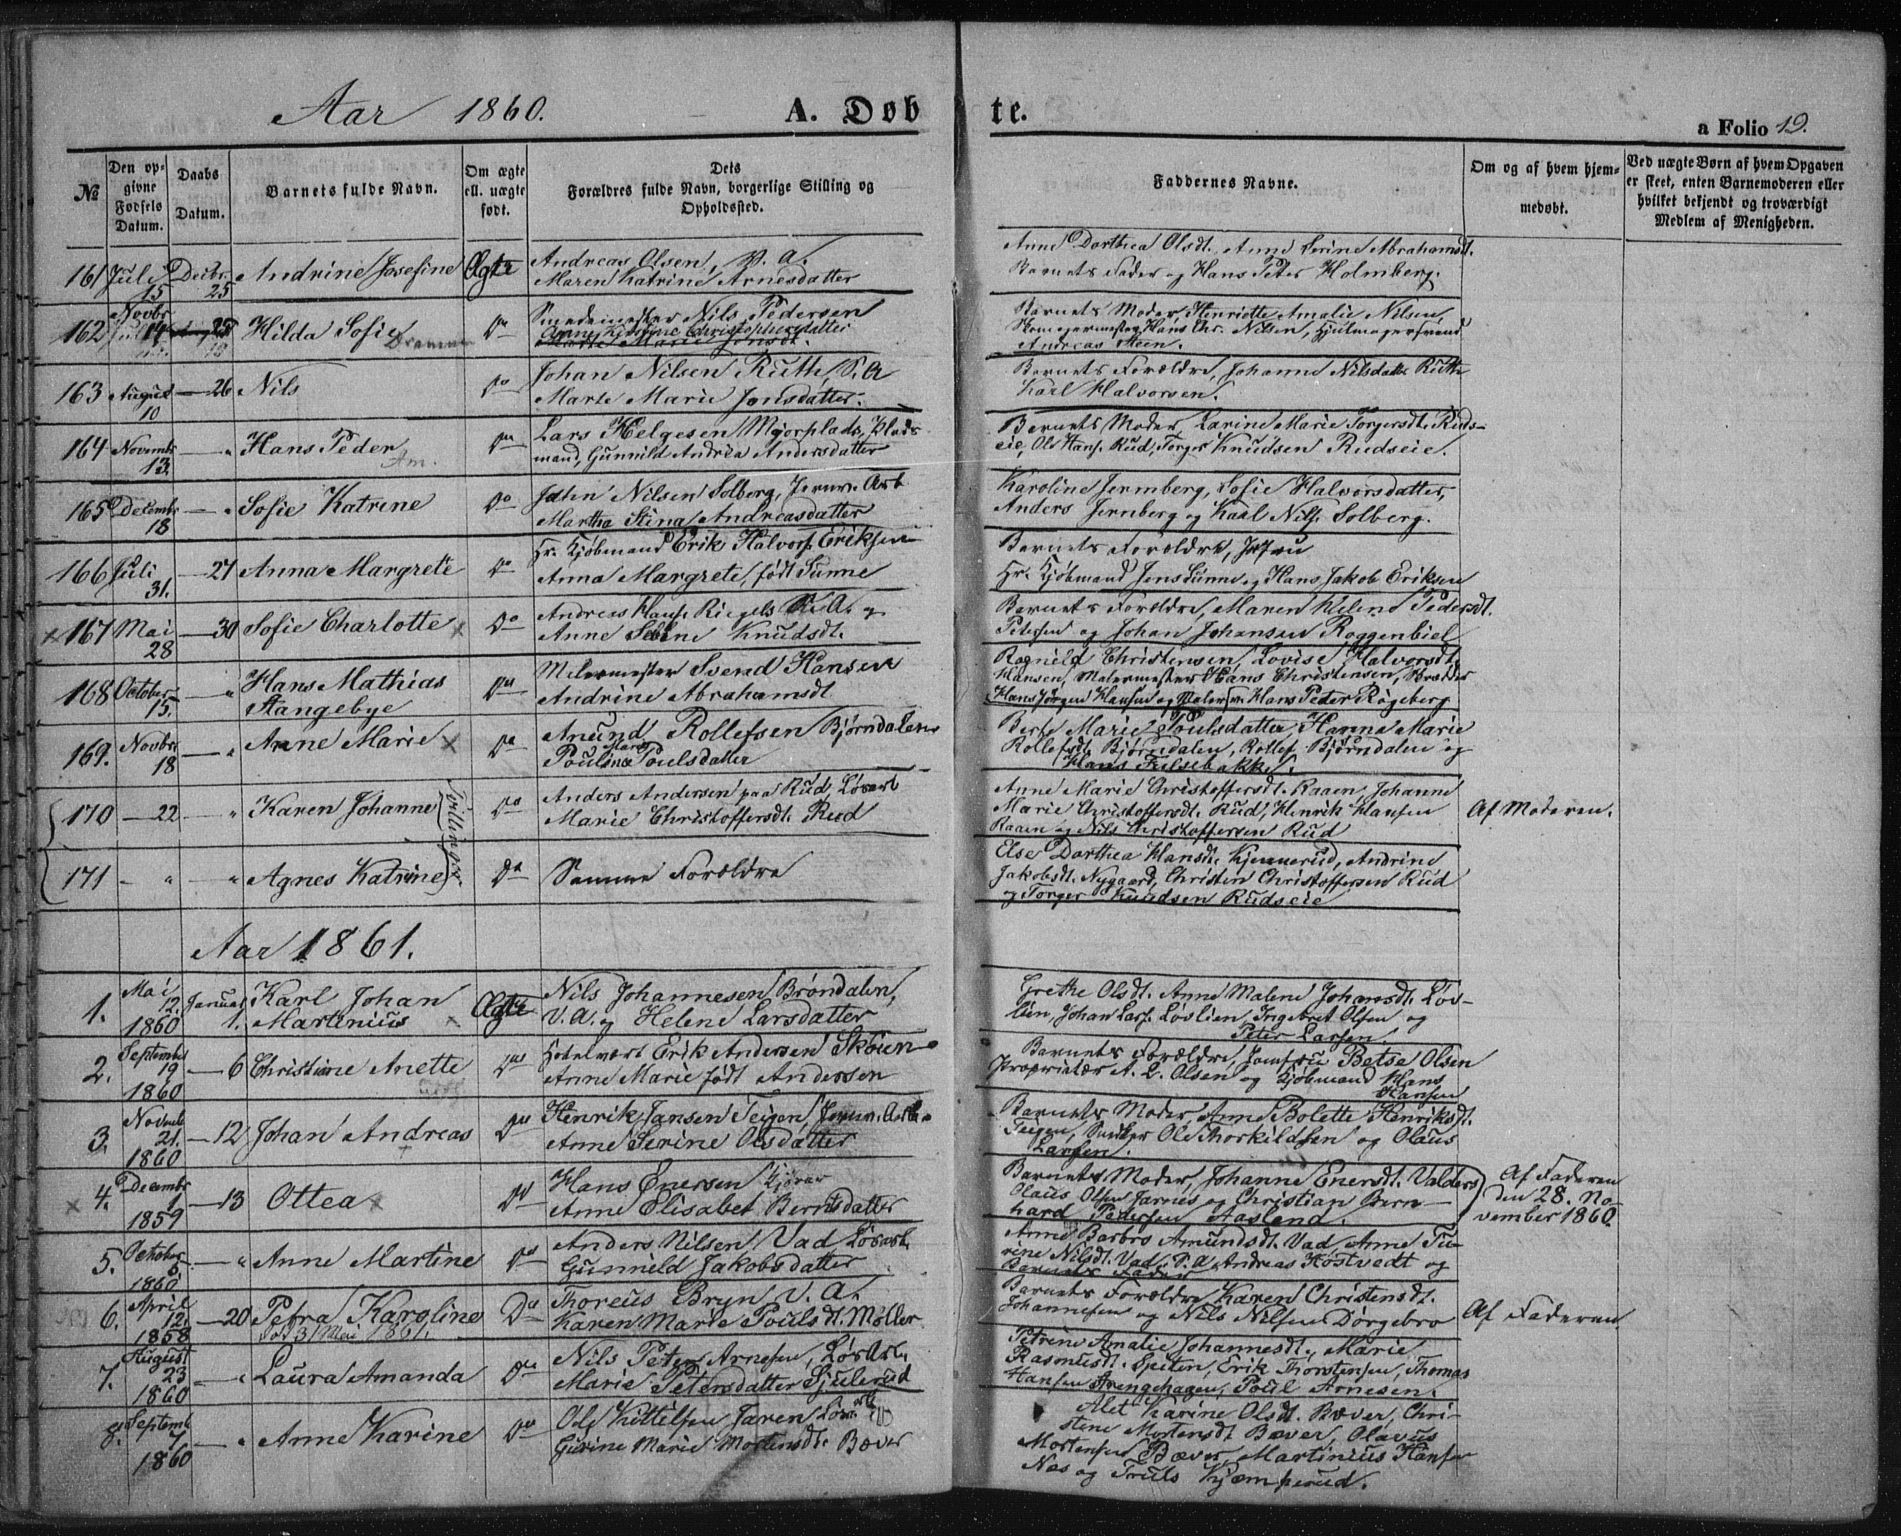 Aar 1860.
A. Døb
te.
a Folio 19.
№
Den op-
givne
Fødsels
Datum.
Daabs
Datum.
Barnets fulde Navn.
Om ægte
ell. uægte
født.
Dets
Forældres fulde Navn, borgerlige Stilling og
Opholdssted.
Faddernes Navne.
Om og af hvem hjem-
medøbt.
Ved uægte Børn af hvem Opgaven
er skeet, enten Barnemoderen eller
hvilket bekjendt og troværdigt
Medlem af Menigheden.
161 Juli 15 Decbr. 25 Andrine Josefine Ægte
Andreas Olsen,
Maren Katrine Arnesdatter
Anne Dorthea Olsdt. Anne Serine Abrahamsdt.
Barnets Fader og Hans Peter Holmberg.
162 Novbr. 14 Hilda Sofie Drammen Do
Smedemester Nils Pedersen
Anne Kirstine Christophersdatter
Marte Marie Jonsdt.
Barnets Moder, Henriette Amalie Nilsen,
Skomagermester Hans Chr. Nilsen, Hjulmagersvend
Andreas Steen.
163 August 10 — 26 Nils Do
Johan Nilsen Ruth,
Marte Marie Jonsdatter.
Barnets Forældre, Johanne Nilsdatter Ruth
Karl Halvorsen.
164 Novembr 13 — " Hans Peder Do
Lars Helgesen Myorplads, Plads-
mand, Gunnild Andrea Andersdatter
Barnets Moder, Larine Marie Torgersdt. Ruds-
eie, Ole Hans. Rud, Torger Knudsen Rudseie.
165 Decembr 18 — " Sofie Katrine Do
John Nilsen Solberg, Jernv. Arb
Martha Stina Andreasdatter
Karoline Jernberg, Sofie Halvorsdatter,
Anders Jernberg og Karl Nils. Solberg.
166 Juli 31. — 27 Anna Margrete Do
Hr. Kjøbmand Erik Halvors. Eriksen
Anna Margrete, født Sunne
Barnets Forældre, Jfru
Hr. Kjøbmand Jens Sunne og Hans Jakob Eriksen
× 167 Mai 28 — 30 Sofie Charlotte × Do
Andreas Hans. Riegels og
Anne Knudsdt.
Barnets Forældre, Maren Helene Pedersdt.
Petersen og Johan Johansen Roggenbiel
168 October 15. — " Hans Mathias
Stangebye Do
Milermester Svend Hansen
Andrine Abrahamsdt
Ragnild Christensen, Lovise Halvorsdt.
Hansen, Malermester Hans Christensen,
Hans Jørgen Hansen og Hans Peter Røgeberg
169. Novbr 18 — " Anne Marie × Do
Anund Rollefsen Bjørndalen
Poulsdatter
Berte Marie Poulsdatter, Hanna Marie
Rollefsdt. Bjørndalen, Rollef Bjørndalen og
Hans Fulsebakke.
170 — 22 — " Karen Johanne Tvillinger Do
Anders Andersen paa Rud, Løsarb
Marie Christoffersdt. Rud
Anne Marie Christoffersdt. Raaen, Johanne
Marie Christoffersdt. Rud, Henrik Hansen
Raaen og Nils Christoffersen Rud
Af Moderen.
171 - " — " Agnes Katrine Do
Samme Forældre
Else Dorthea Hansdt. Kjennerud, Andrine
Jakobsdt. Nygaard, Christen Christoffersen Rud
og Torger Knudsen Rudseie
Aar 1861.
1. Mai 12. 1860 Januar 1. Karl Johan
Martinius × Ægte
Nils Johannesen Brøndalen,
V.A. og Helene Larsdatter
Grethe Olsdt. Anne Malene Johansdt. Løv-
lien, Johan Lars. Løvlien, Ingebret Olsen og
Peter Larsen.
2. September 19 1860 — 6 Christiane Anette Do
Hotelvært Erik Andersen Skøien
Anne Marie født Andersen
Barnets Forældre, Jomfru Betse Olsen
Proprietær A. L. Olsen og Kjøbmand Hans
Hansen
3. Novemb 21. 1860 — 12 Johan Andreas Do
Henrik Jansen Teigen, Jernv. Arb.
Anne Serine Olsdatter
Barnets Moder, Anne Bolette Henriksdt.
Teigen, Snedker Ole Thorkildsen og Olaus
Larsen.
× 4. Decembr 1 1859 — 13 Ottea × Do
Hans Enersen Kjørar
Anne Elisabet Berntsdatter
Barnets Moder, Johanne Enersdt. Valders
Olaus Olsen Jarnes og Christian Bern-
hard Pedersen Aaslena.
Af Faderen
den 28. No-
vember 1860
5. October 5. 1860 — " Anne Martine Do
Anders Nilsen Vad Løsarb.
Gunnild Jakobsdatter
Anne Barbro Amundsdt. Vad Anne Tu-
rine Nilsdt. Vad, P.A. Andreas Kostvedt og
Barnets Fader
6. April 12. 1858 — 20 Petra Karoline
1861. Do
Thoreus Bryn V. A.
Karen Marie Poulsdt. Møller
Barnets Forældre Karen Christensdt.
Johannesen og Nils Nilsen Dørgebro
Af Faderen
7. August 23 1860 — " Laura Amanda Do
Nils Peter Arnesen, Løsarb.
Marie Petersdatter Sjulerud
Petrine Amalie Johannesdt. Marie
Rasmusdt. Speten, Erik Thorstensen, Thomas
Hansen Strengehagen, Poul Arnesen.
8. Septemb 7 1860 — " Anne Karine Do
Ole Kittelsen Jaren Løsarb
Gurine Marie Mortensdt. Bæver
Alet Karine Olsdt. Bæver, Chri-
stene Mortensdt Bæver, Olavus
Mortensen Bæver, Martinius Hansen
Næs og Truls Kjæmperud.